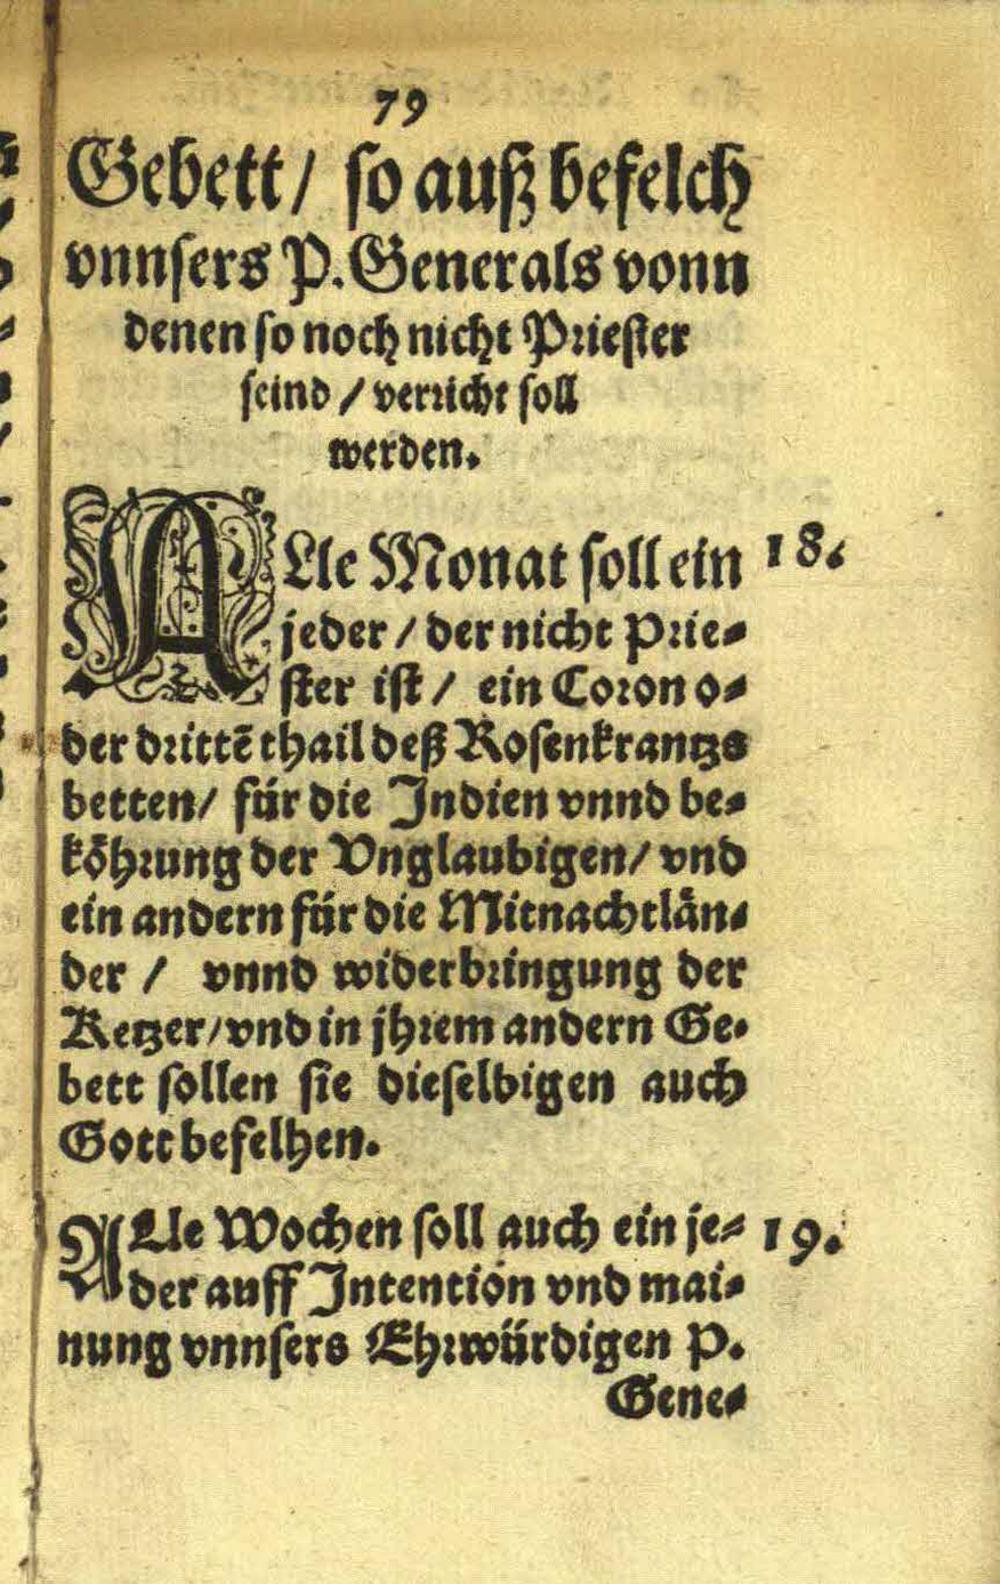 79
Gebett/ so auß befelch
vnnsers P. Generals vonn
denen so noch nicht Priester
seind / verricht soll
werden.
ALle Monat soll ein 18.
jeder / der nicht Prie-
ster ist / ein Coron o-
der drittē thail deß Rosenkrantzs
betten/ für die Indien vnnd be-
köhrung der Vnglaubigen/ vnd
ein andern für die Mitnachtlän-
der / vnnd widerbringung der
Ketzer/vnd in jhrem andern Ge-
bett sollen sie dieselbigen auch
Gott befelhen.
ALle Wochen soll auch ein je- 19.
der auff Intention vnd mai-
nung vnnsers Ehrwürdigen P.
Gene-